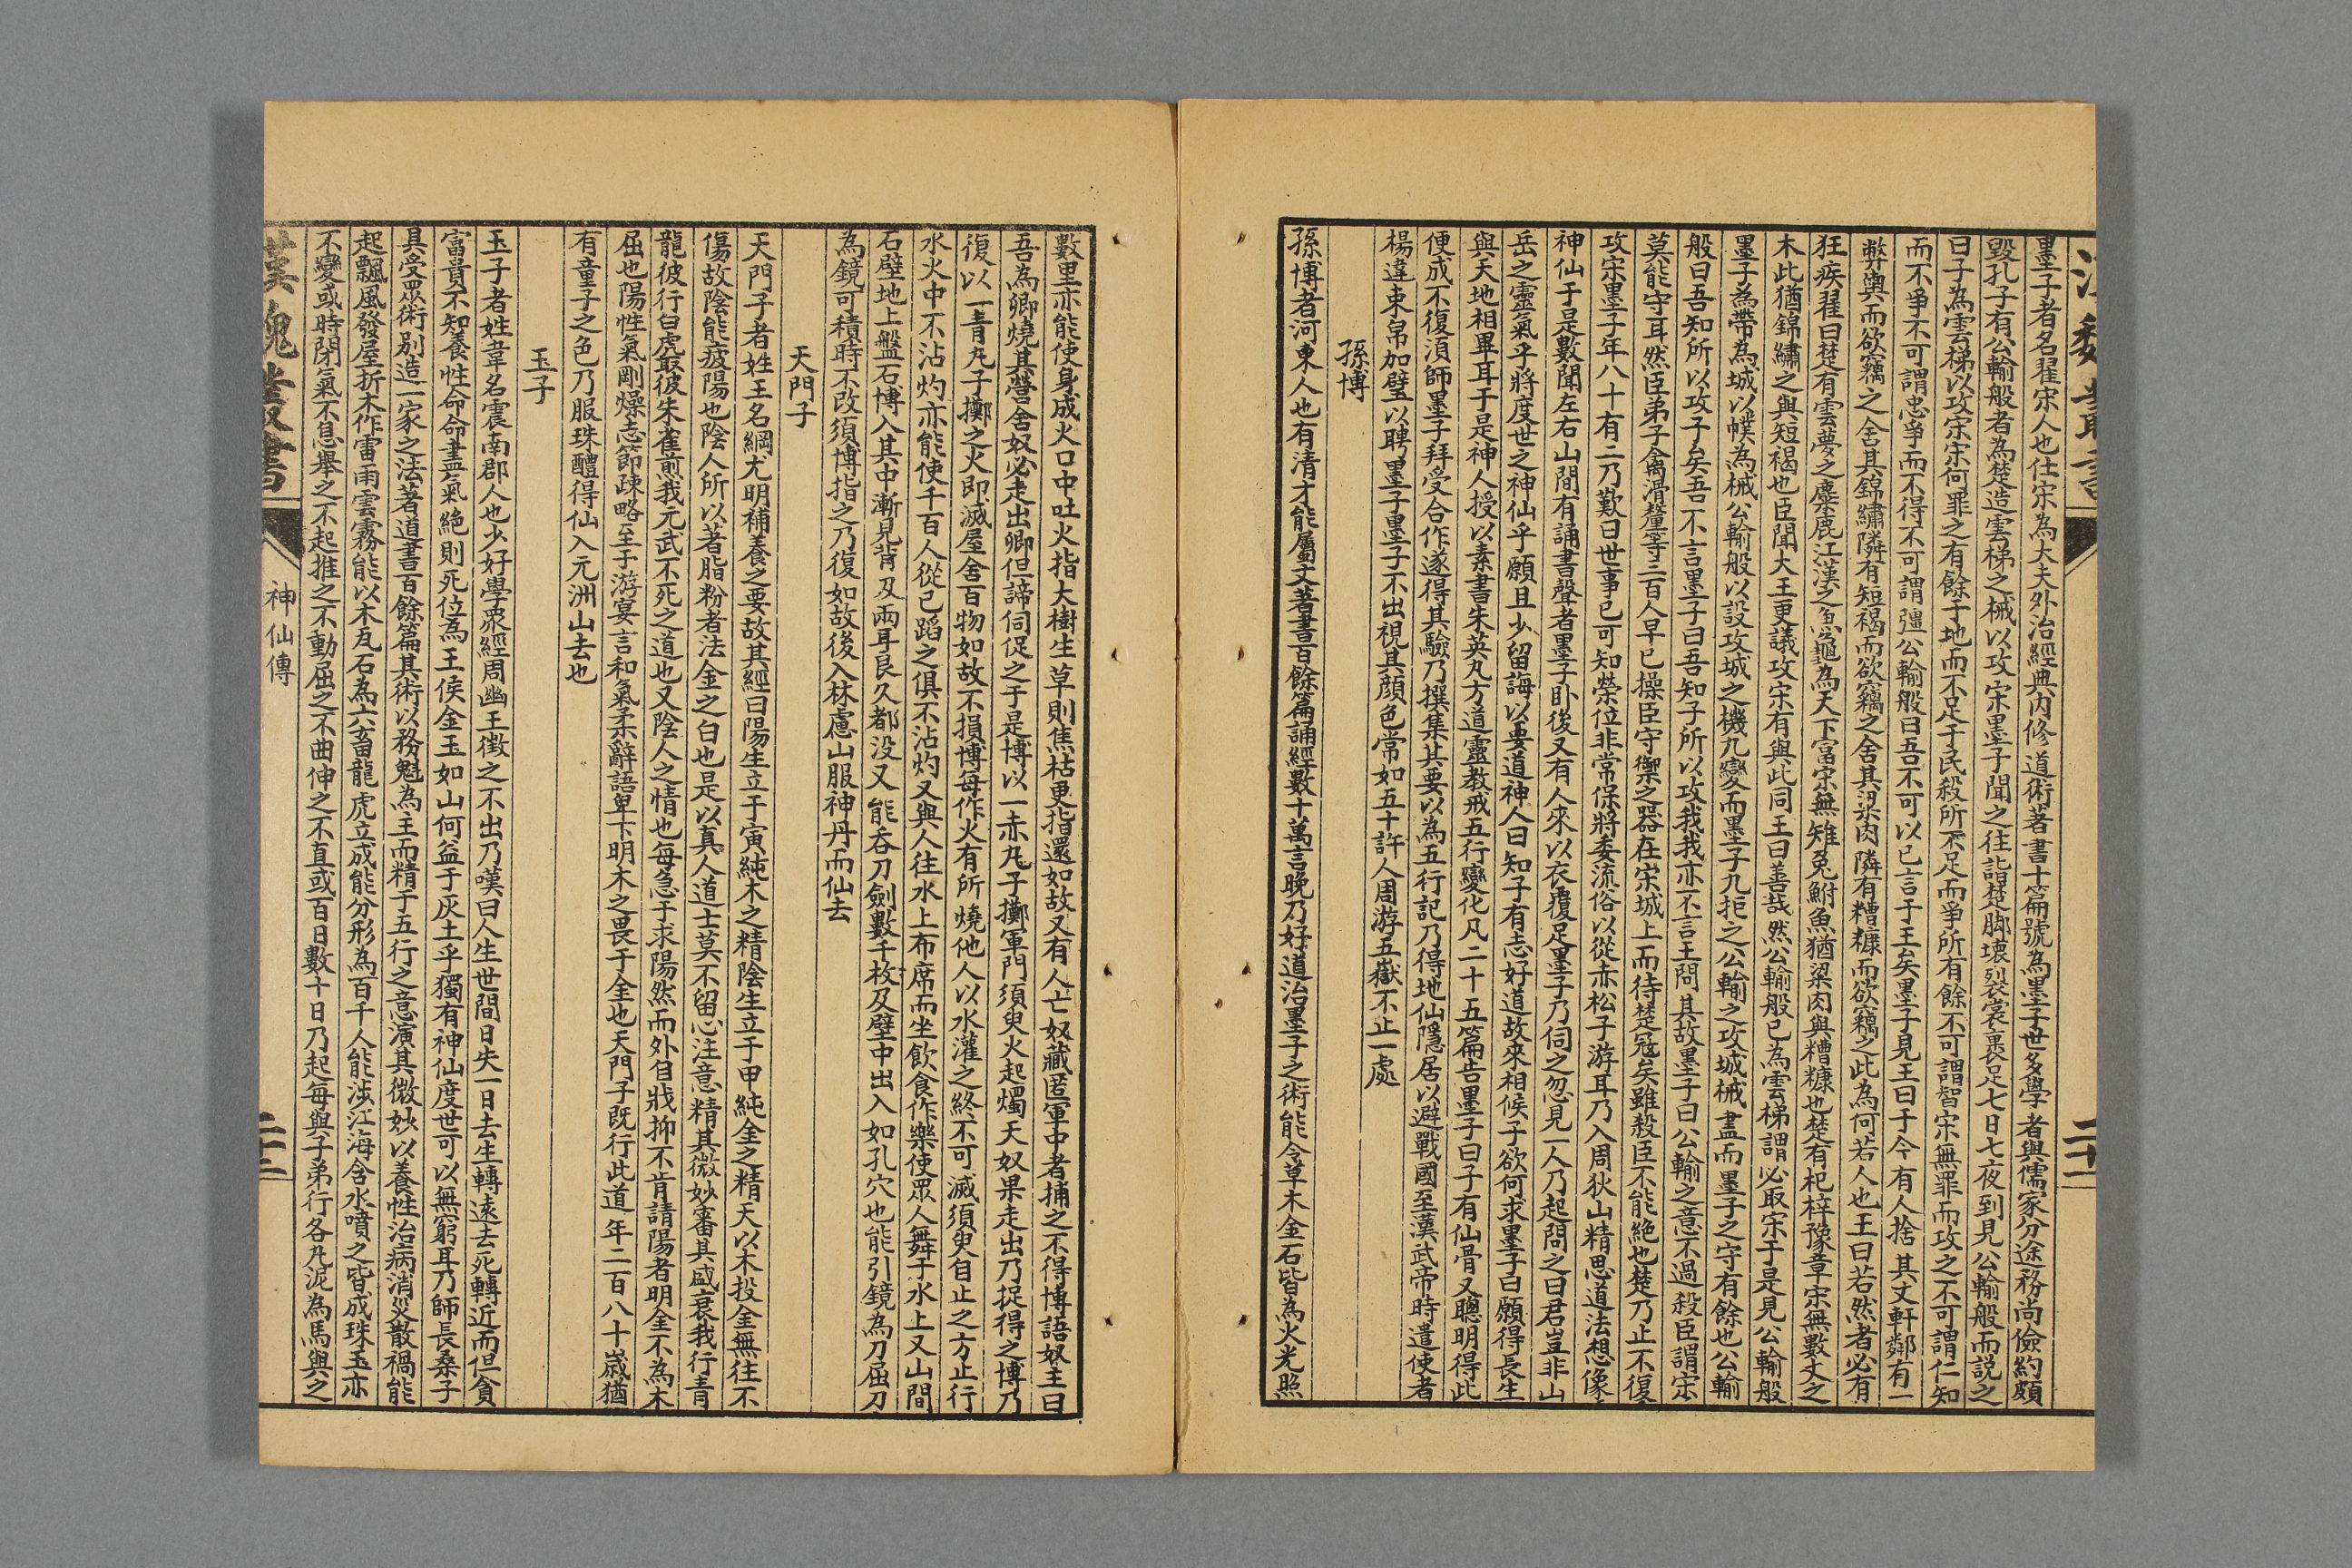 漢魏叢書
二十一
墨子者名翟宋人也仕宋為大夫外治經典內修道術著書十篇號為墨子世多學者與儒家分途務尚儉約頗
毀孔子有公輸般者為楚造雲梯之械以攻宋墨子聞之往詣楚腳壞裂裳裹足七日七夜到見公輸般而說之
曰子為雲梯以攻宋宋何罪之有餘于地而不足于民殺所不足而爭所有餘不可謂智宋無罪而攻之不可謂仁知
而不爭不可謂忠爭而不得不可謂彊公輸般曰吾不可以已言于王矣墨子見王曰于今有人捨其文軒鄰有一
弊輿而欲竊之舍其錦繡隣有短褐而欲竊之舍其梁肉隣有糟糠而欲竊之此為何若人也王曰若然者必有
狂疾翟曰楚有雲夢之麋鹿江漢之魚龜為天下富宋無雉兔鮒魚猶梁肉與糟糠也楚有杞梓豫章宋無數丈之
木此猶錦繡之與短褐也臣聞大王更議攻宋有與此同王曰善哉然公輸般已為雲梯謂必取宋于是見公輸般
墨子為帶為城以幞為械公輸般以設攻城之機九變而墨子九拒之公輸之攻城械盡而墨子之守有餘也公輸
般曰吾知所以攻子矣吾不言墨子曰吾知子所以攻我我亦不言王問其故墨子曰公輸之意不過殺臣謂宋
莫能守耳然臣弟子禽滑釐等三百人早已操臣守禦之器在宋城上而待楚寇矣雖殺臣不能絕也楚乃止不復
攻宋墨子年八十有二乃歎曰世事已可知榮位非常保將委流俗以從赤松子游耳乃入周狄山精思道法想像
神仙于是數聞左右山間有誦書聲者墨子卧後又有人來以衣覆足墨子乃伺之忽見一人乃起問之曰君豈非山
岳之靈氣乎將度世之神仙乎願且少留誨以要道神人曰知子有志好道故來相候子欲何求墨子曰願得長生
與天地相畢耳于是神人授以素書朱英丸方道靈教戒五行變化凡二十五篇告墨子曰子有仙骨又聰明得此
便成不復須師墨子拜受合作遂得其驗乃撰集其要以為五行記乃得地仙隱居以避戰國至漢武帝時遣使者
楊違束帛加璧以聘墨子墨子不出視其顏色常如五十許人周游五嶽不止一處
孫博
孫博者河東人也有清才能屬文著書百餘篇誦經數十萬言晚乃好道治墨子之術能令草木金石皆為火光照
數里亦能使身成火口中吐火指大樹生草則焦枯更指還如故又有人亡奴藏匿軍中者捕之不得博語奴主曰
吾為卿燒其營舍奴必走出卿但諦伺促之于是博以一赤丸子擲軍門須臾火起燭天奴果走出乃捉得之博乃
復以一青丸子擲之火即滅屋舍百物如故不損博每作火有所燒他人以水灌之終不可滅須臾自止之方止行
水火中不沾灼亦能使千百人從已蹈之俱不沾灼又與人往水上布席而坐飲食作樂使眾人舞于水上又山間
石壁地上盤石博入其中漸見背及兩耳良久都沒又能吞刀劍數千枚及壁中出入如孔穴也能引鏡為刀屈刀
為鏡可積時不改須博指之乃復如故後入林慮山服神丹而仙去
天門子
天門子者姓王名綱尤明補養之要故其經曰陽生立于寅純木之精陰生立于甲純金之精天以木投金無往不
傷故陰能疲陽也陰人所以著脂粉者法金之白也是以真人道士莫不留心注意精其微妙審其盛衰我行青
龍彼行白虎取彼朱雀煎我元武不死之道也又陰人之情也每急于求陽然而外自戕抑不肯請陽者明金不為木
屈也陽性氣剛燥志節疎略至于游宴言和氣柔辭語卑下明木之畏于金也天門子既行此道年二百八十歲猶
有童子之色乃服珠醴得仙入元洲山去也
玉子
玉子者姓韋名震南郡人也少好學眾經周幽王徵之不出乃嘆曰人生世間日失一日去生轉遠去死轉近而但貪
富貴不知養性命命盡氣絕則死位為王侯金玉如山何益于灰土乎獨有神仙度世可以無窮耳乃師長桑子
具受眾術別造一家之法著道書百餘篇其術以務魁為主而精于五行之意演其微妙以養性治病消災散禍能
起飄風發屋折木作雷雨雲霧能以木瓦石為六畜龍虎立成能分形為百千人能涉江海含水噴之皆成珠玉亦
不變或時閉氣不息舉之不起推之不動屈之不曲伸之不直或百日數十日乃起每與子弟行各丸泥為馬與之
漢魏叢書
神仙傳
二十二